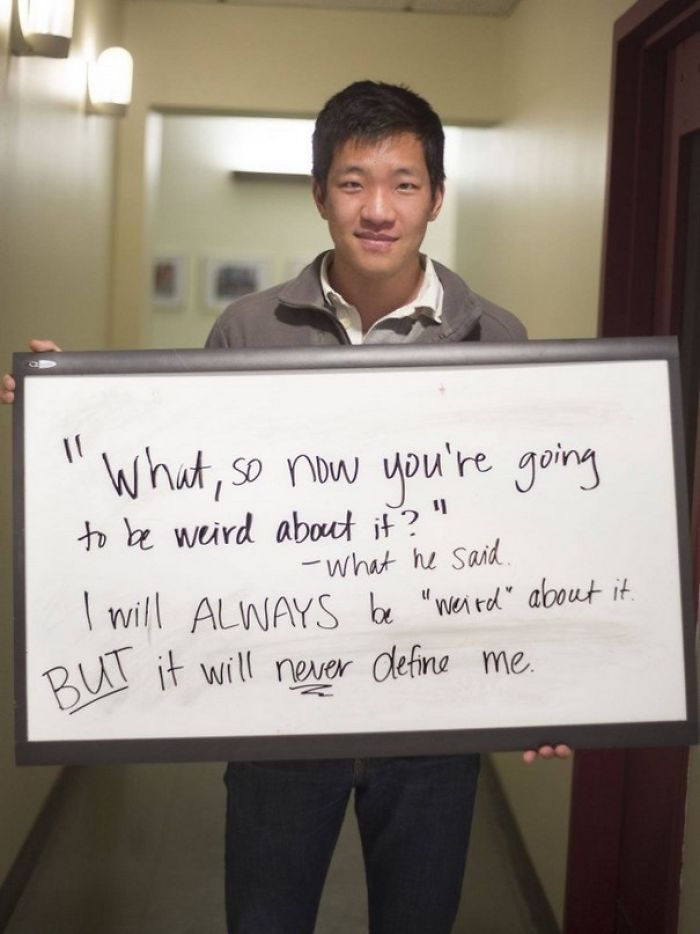 "What, so now you're going
to be weird about it?"
-what he said.
I will ALWAYS be "weird" about it.
BUT it will never define me.